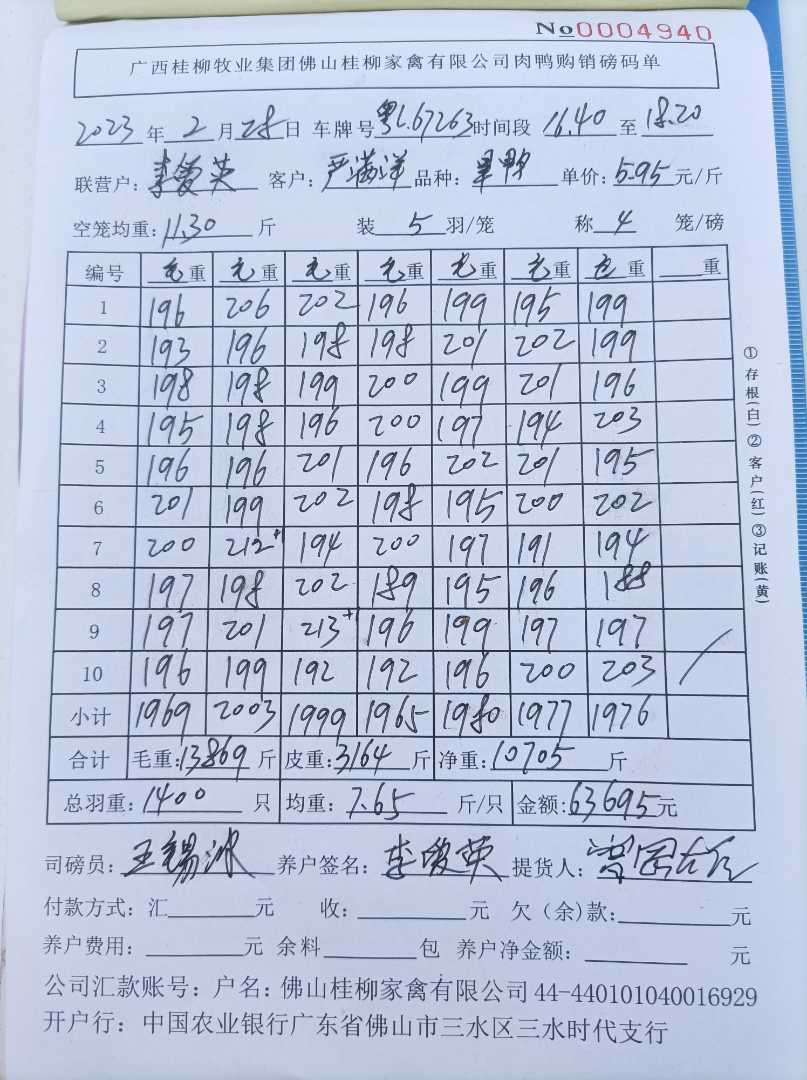 No0004940
广西桂柳牧业集团佛山桂柳家禽有限公司肉鸭购销磅码单
2023年2月28日 车牌号粤L67263时间段 16.40 至 18.20
联营户：李爱英 客户：严满洋 品种：里鸭 单价：5.95元/斤
空笼均重：11.30 斤 装 5 羽/笼 称 4 笼/磅
编号 毛重 毛重 毛重 毛重 毛重 毛重 毛重 重
1 196 206 202 196 199 195 199
2 193 196 198 198 201 202 199
3 198 198 199 200 199 201 196
4 195 198 196 200 197 194 203
5 196 196 201 196 202 201 195
6 201 199 202 198 195 200 202
7 200 212+1 194 200 197 191 194
8 197 198 202 189 195 196 188
9 197 201 213+1 196 199 197 197
10 196 199 192 192 196 200 203
小计 1969 2003 1999 1965 1980 1977 1976
合计 毛重：13869 斤 皮重：3164 斤 净重：10705 斤
总羽重：1400 只 均重：7.65 斤/只 金额：63695元
司磅员：王锡冰 养户签名：李爱英 提货人：
付款方式：汇 元 收： 元 欠（余）款： 元
养户费用： 元 余料 包 养户净金额： 元
公司汇款账号：户名：佛山桂柳家禽有限公司44-440101040016929
开户行：中国农业银行广东省佛山市三水区三水时代支行
①存根（白）②客户（红）③记账（黄）